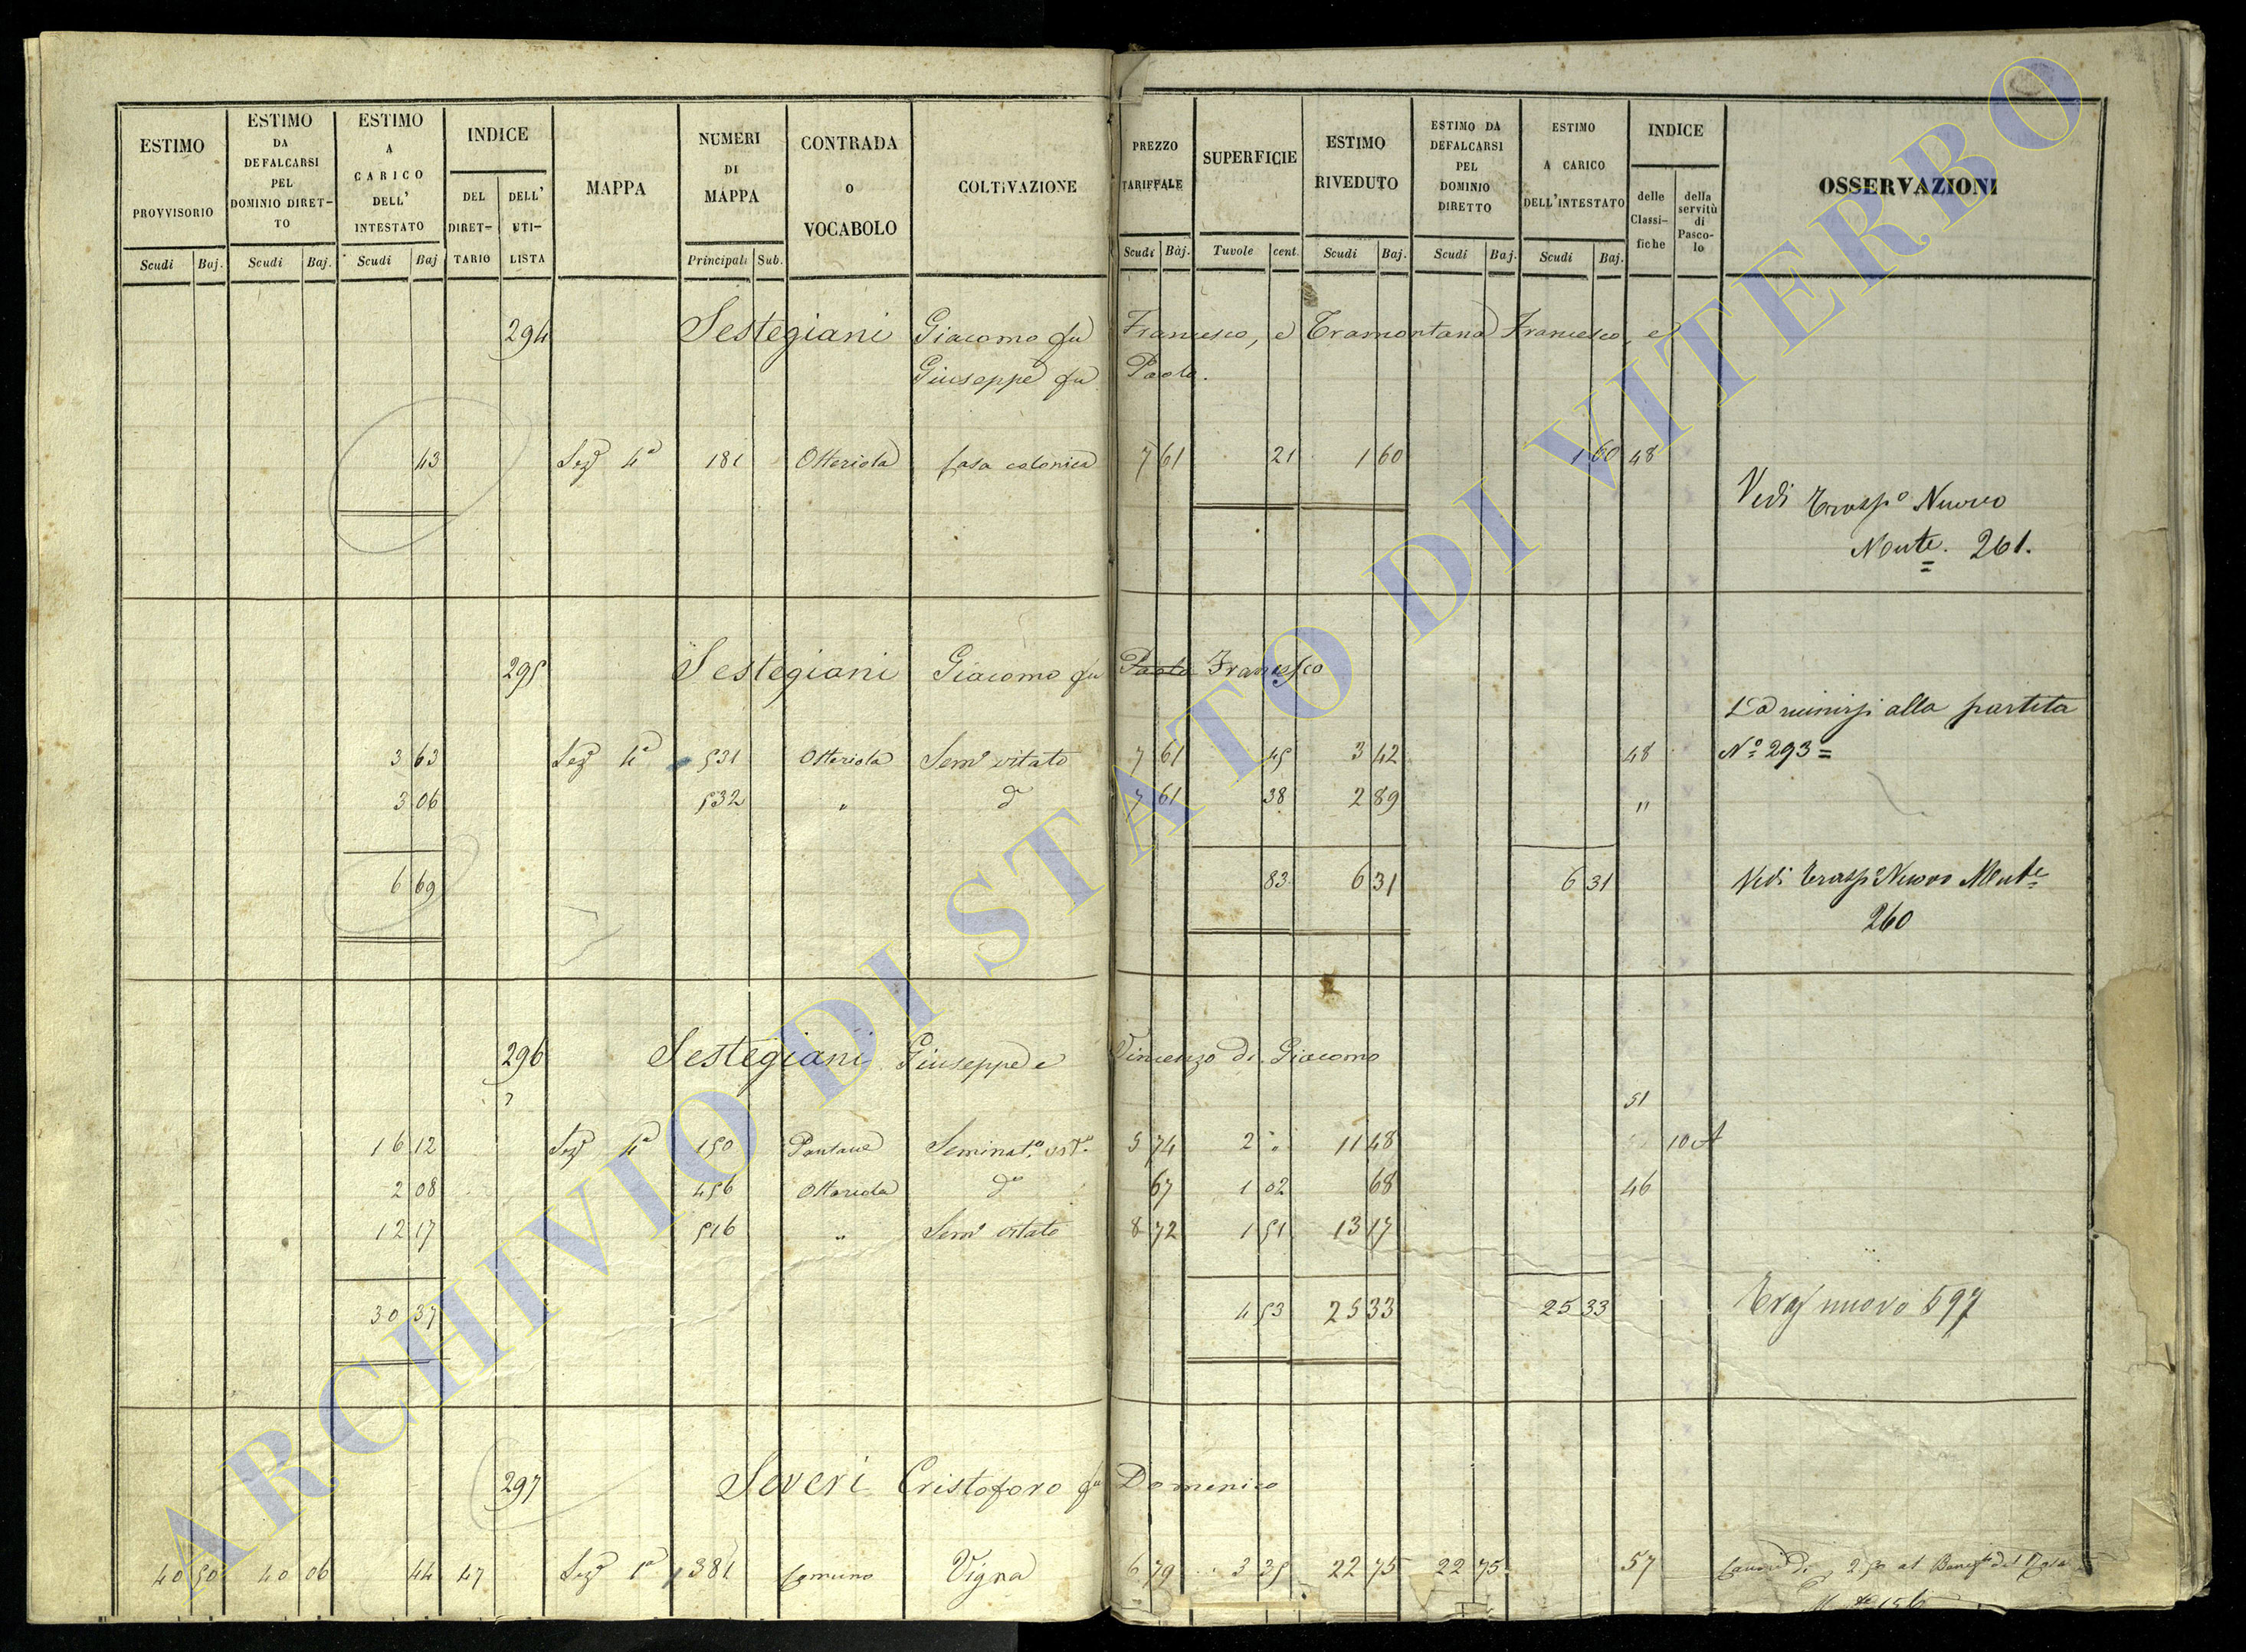 ESTIMO PROVVISORIO Scudi Baj.
ESTIMO DA DEFALCARSI PEL DOMINIO DIRET- TO Scudi Baj.
ESTIMO A CARICO DELL' INTESTATO Scudi Baj
INDICE DEL DIRET- TARIO DELL' UTI- LISTA
MAPPA
NUMERI DI MAPPA Principali Sub.
CONTRADA O VOCABOLO
COLTIVAZIONE
PREZZO TARIFFALE Scudi Baj.
SUPERFICIE Tavole cent.
ESTIMO RIVEDUTO Scudi Baj.
ESTIMO DA DEFALCARSI PEL DOMINIO DIRETTO Scudi Baj.
ESTIMO A CARICO DELL'INTESTATO Scudi Baj.
INDICE delle Classi- fiche della servitù di Pasco- lo
OSSERVAZIONI
294 Sestegiani Giacomo fu Francesco, e Tramontana Francesco, e
Giuseppe fu Paolo.
43 Sezе 4a 181 Otteriola Casa colonica 7 61 21 1 60 1 60 48
Vedi Traspo Nuovo
Mente. 261.
295 Sestegiani Giacomo fu Paolo Francesco
Da riunirsi alla partita
3 63 Seze 4a 531 Otteriola Semo vitato 7 61 45 3 42 48 No 293 =
3 06 532 " do 7 61 38 2 89 "
6 69 83 6 31 6 31 Vedi Traspo Nuovo Mente
260
296 Sestegiani Giuseppe e Vincenzo di Giacomo
51
16 12 Seze 4a 150 Pantane Seminato vito 5 74 2 " 11 48 10 A
2 08 456 Otteriola do 67 1 02 68 46
12 17 516 " Semo vitato 8 72 1 51 13 17
30 37 4 53 25 33 25 33 Tras nuovo 697
297 Severi Cristoforo fu Domenico
40 50 40 06 44 47 Seze 1a 381 Comuno Vigna 6 79 3 35 22 75 22 75 57 2 50 al
156
ARCHIVIO DI STATO DI VITERBO